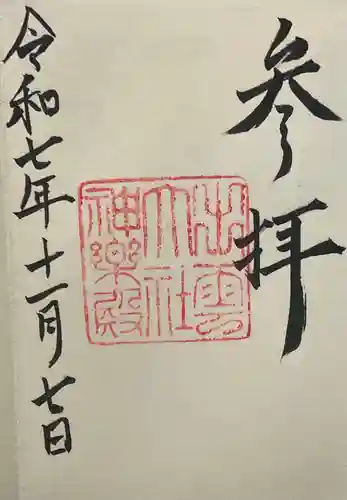 参拝
出雲
大社
神樂殿
令和七年十一月七日